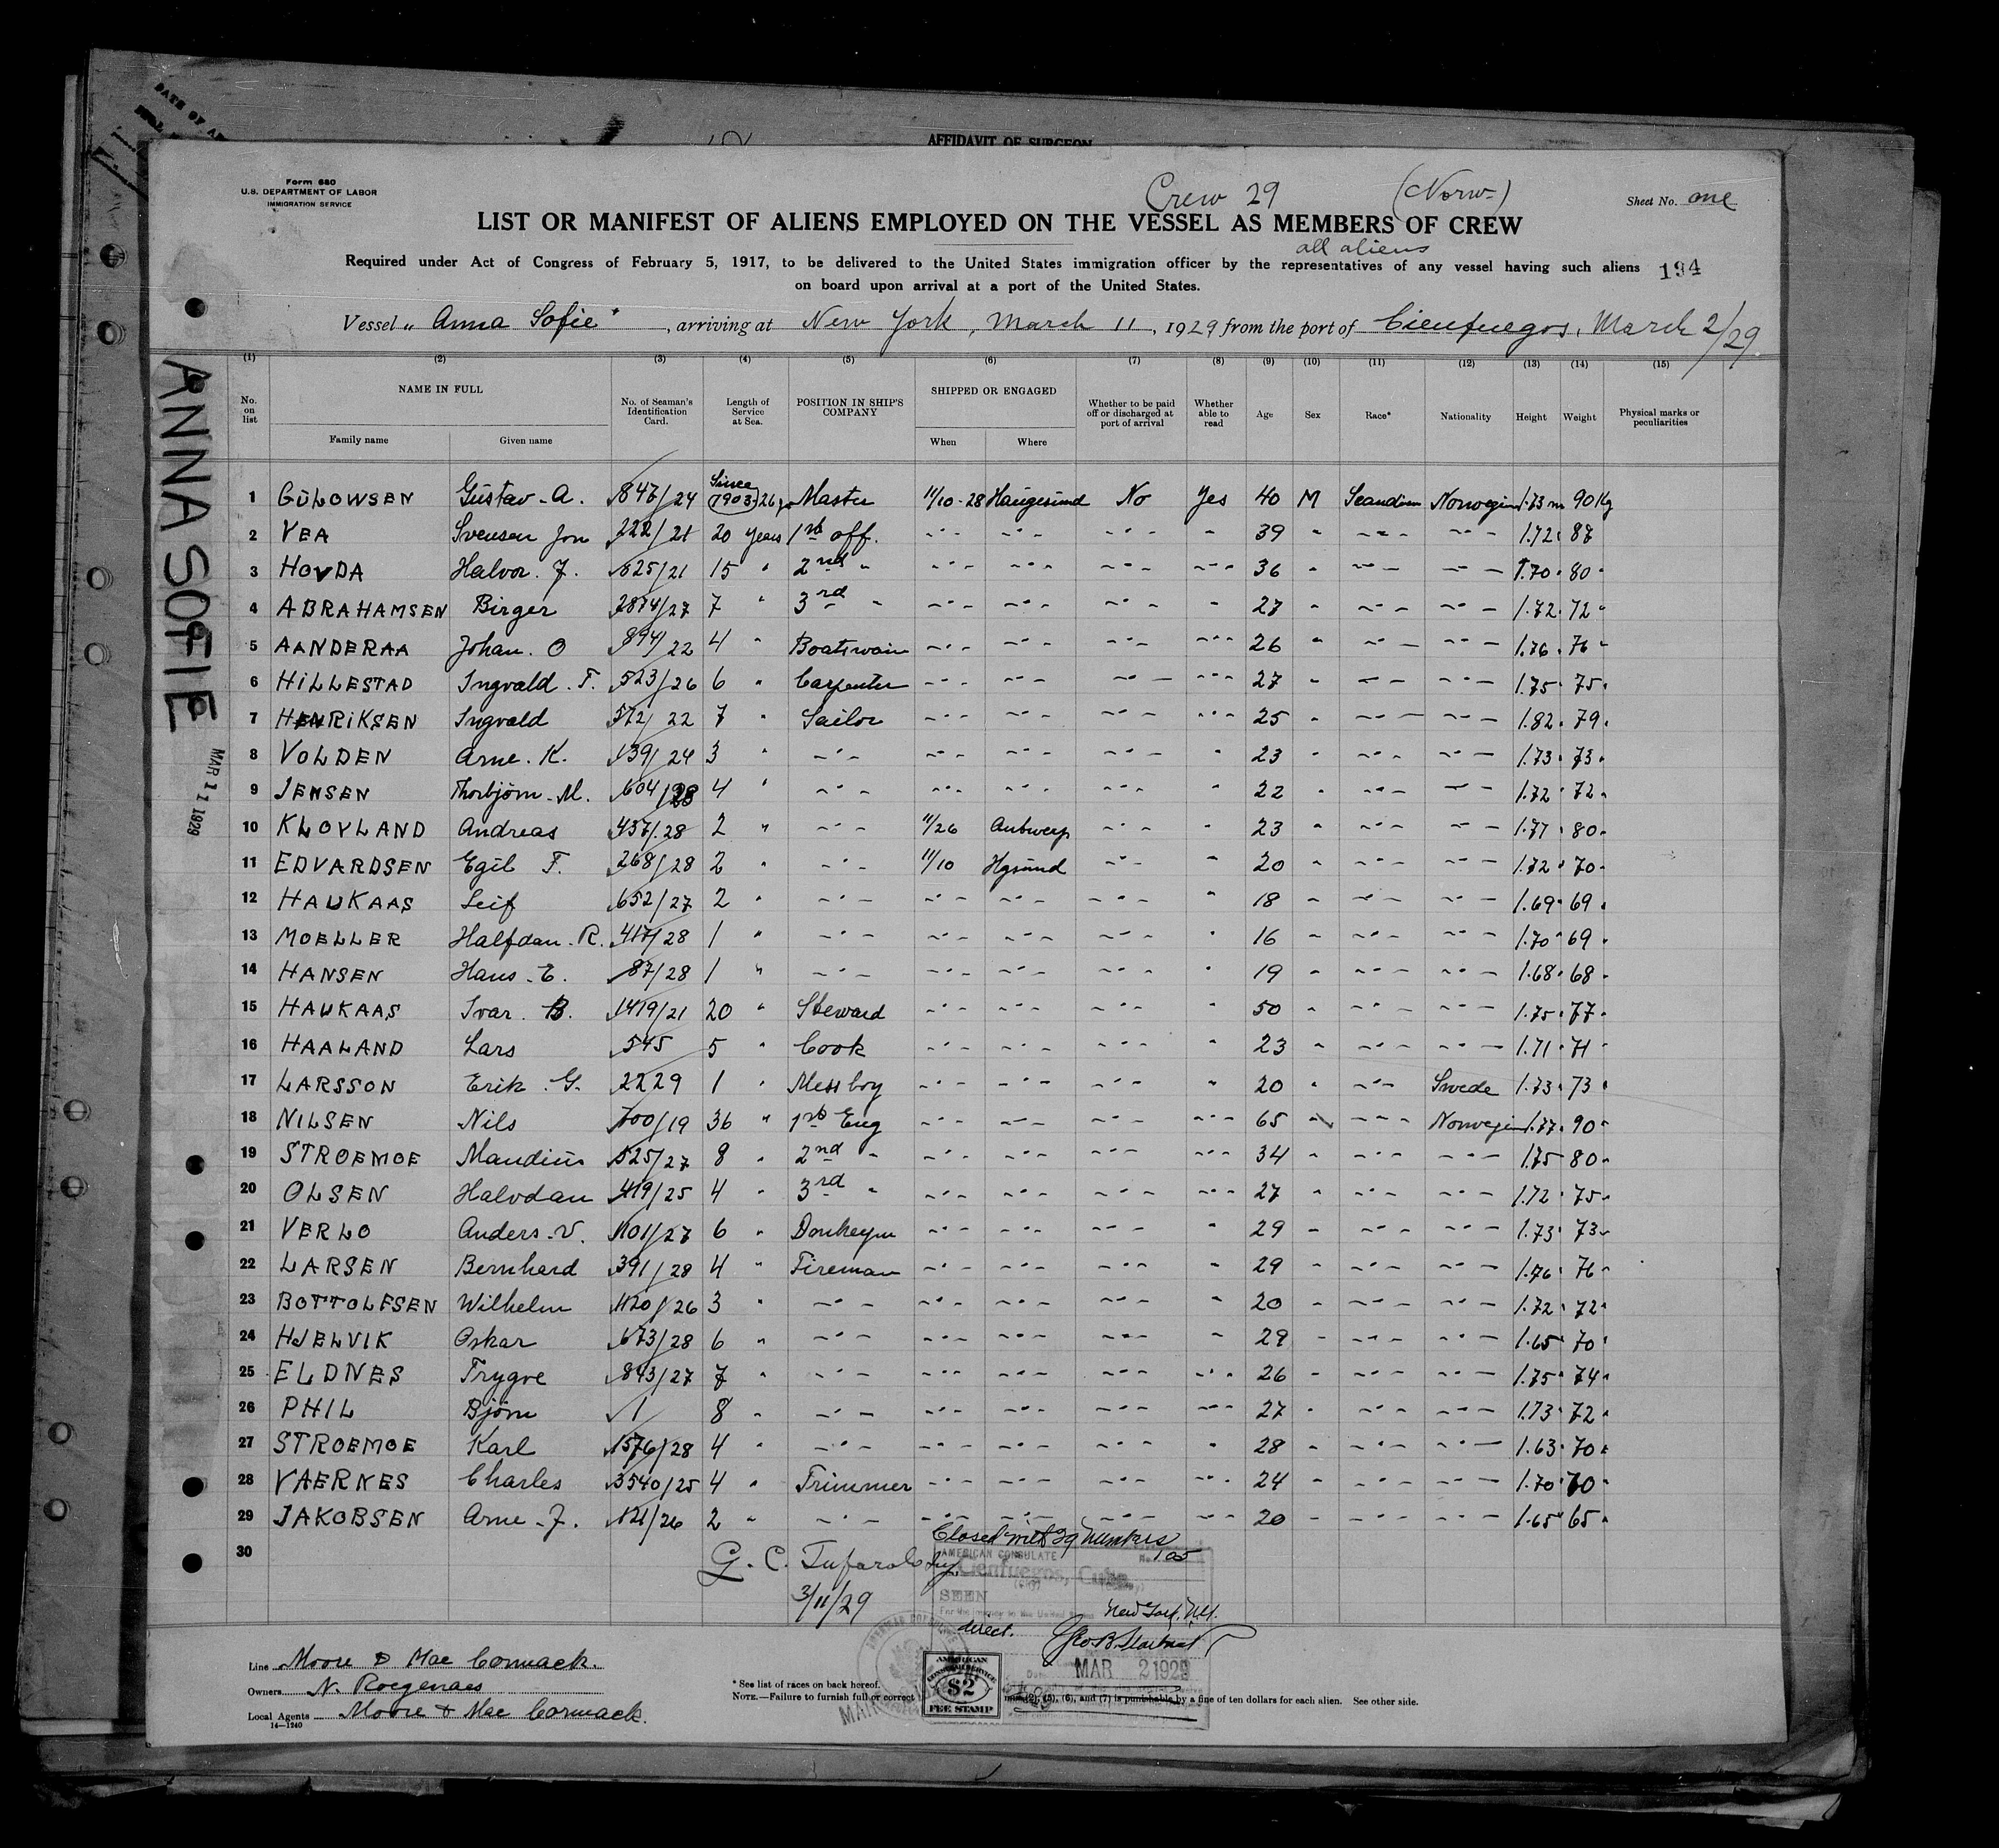 DATE OF AR
AFFIDAVIT OF SURGEON
Form 680
U.S. DEPARTMENT OF LABOR
IMMIGRATION SERVICE
Crew 29 (Norw-)
Sheet No. one
LIST OR MANIFEST OF ALIENS EMPLOYED ON THE VESSEL AS MEMBERS OF CREW
all aliens
Required under Act of Congress of February 5, 1917, to be delivered to the United States immigration officer by the representatives of any vessel having such aliens 194
on board upon arrival at a port of the United States.
Vessel „Anna Sofie", arriving at New York, March 11, 1929 from the port of Cienfuegos, March 2/29
ANNA SOFIE
MAR 11 1929
(1) (2) (3) (4) (5) (6) (7) (8) (9) (10) (11) (12) (13) (14) (15)
No. on list NAME IN FULL Family name Given name No. of Seaman's Identification Card. Length of Service at Sea. POSITION IN SHIP'S COMPANY SHIPPED OR ENGAGED When Where Whether to be paid off or discharged at port of arrival Whether able to read Age Sex Race* Nationality Height Weight Physical marks or peculiarities
1 GÜLOWSEN Gustav-A. 847/24 Since (1903) 26 y Master 11/10-28 Haugesund No Yes 40 M Scandin Norwegin 1.73 m 90 Kg
2 VEA Svensen Jon 222/21 20 years 1st off. -"- -"- -"- " 39 " -"- -"- 1.72 " 87
3 HOVDA Halvor. J. 625/21 15 " 2nd " -"- -"- -"- -"- 36 " -"- -"- 1.70 " 80 "
4 ABRAHAMSEN Birger 2874/27 7 " 3rd " -"- -"- -"- " 27 " -"- -"- 1.72 " 72 "
5 AANDERAA Johan. O 894/22 4 " Boatswain -"- -"- -"- -"- 26 " -"- -"- 1.76 " 76 "
6 HILLESTAD Ingvald. T. 523/26 6 " Carpenter -"- -"- -"- -"- 27 " -"- -"- 1.75 " 75 "
7 HENRIKSEN Ingvald 572/22 7 " Sailor -"- -"- -"- -"- 25 " -"- -"- 1.82 " 79 "
8 VOLDEN Arne. K. 139/24 3 " -"- -"- -"- -"- " 23 " -"- -"- 1.73 " 73 "
9 JENSEN Thorbjørn-M. 604/28 4 " -"- -"- -"- -"- " 22 " -"- -"- 1.72 " 72 "
10 KLOVLAND Andreas 437/28 2 " -"- 11/26 Antwerp -"- " 23 " -"- -"- 1.77 " 80 "
11 EDVARDSEN Egil F. 268/28 2 " -"- 11/10 Hgsund -"- " 20 " -"- -"- 1.72 " 70 "
12 HAUKAAS Leif 652/27 2 " -"- -"- -"- -"- " 18 " -"- -"- 1.69 " 69 "
13 MOELLER Halfdan. R. 417/28 1 " -"- -"- -"- -"- " 16 " -"- -"- 1.70 " 69 "
14 HANSEN Hans-E. 87/28 1 " -"- -"- -"- -"- " 19 " -"- -"- 1.68 " 68 "
15 HAUKAAS Ivar. B. 1419/21 20 " Steward -"- -"- -"- " 50 " -"- -"- 1.75 " 77 "
16 HAALAND Lars 545 5 " Cook -"- -"- -"- " 23 " -"- -"- 1.71 " 71 "
17 LARSSON Erik. G. 2229 1 " Messboy -"- -"- -"- " 20 " -"- Swede 1.73 " 73 "
18 NILSEN Nils 700/19 36 " 1st Eng -"- -"- -"- -"- 65 " -"- Norwegin 1.77 " 90 "
19 STROEMOE Mandius 525/27 8 " 2nd " -"- -"- -"- -"- 34 " -"- -"- 1.75 80 "
20 OLSEN Halvdan 419/25 4 " 3rd " -"- -"- -"- -"- 27 " -"- -"- 1.72 " 75 "
21 VERLO Anders-V. 1101/27 6 " Donkeym -"- -"- -"- " 29 " -"- -"- 1.73 " 73 "
22 LARSEN Bernhard 391/28 4 " Fireman -"- -"- -"- " 29 " -"- -"- 1.76 " 76 "
23 BOTTOLFSEN Wilhelm 1120/26 3 " -"- -"- -"- -"- " 20 " -"- -"- 1.72 " 72 "
24 HJELVIK Oskar 673/28 6 " -"- -"- -"- -"- " 29 " -"- -"- 1.65 " 70 "
25 ELDNES Trygve 843/27 7 " -"- -"- -"- -"- -"- 26 " -"- -"- 1.75 " 74 "
26 PHIL Bjørn 1 8 " -"- -"- -"- -"- -"- 27 " -"- -"- 1.73 " 72 "
27 STROEMOE Karl 1576/28 4 " -"- -"- -"- -"- " 28 " -"- -"- 1.63 " 70 "
28 VAERNES Charles 3540/25 4 " Trimmer -"- -"- -"- -"- 24 " -"- -"- 1.70 " 70 "
29 JAKOBSEN Arne-J. 121/26 2 " -"- -"- -"- -"- -"- 20 " -"- -"- 1.65 " 65 "
30
Closed with 29 numbers
G. C. Tufarolo
3/11/29
AMERICAN CONSULATE
Cienfuegos, Cuba
SEEN
For the journey to the United States
New York, N.Y.
direct.
MAR 2 1929
AMERICAN CONSULAR SERVICE $2 FEE STAMP
Line Moore & Mac Cormack.
Owners N. Roegenaes
Local Agents Moore & Mac Cormack.
14—1240
* See list of races on back hereof.
NOTE.—Failure to furnish full or correct (2), (5), (6), and (7) is punishable by a fine of ten dollars for each alien. See other side.